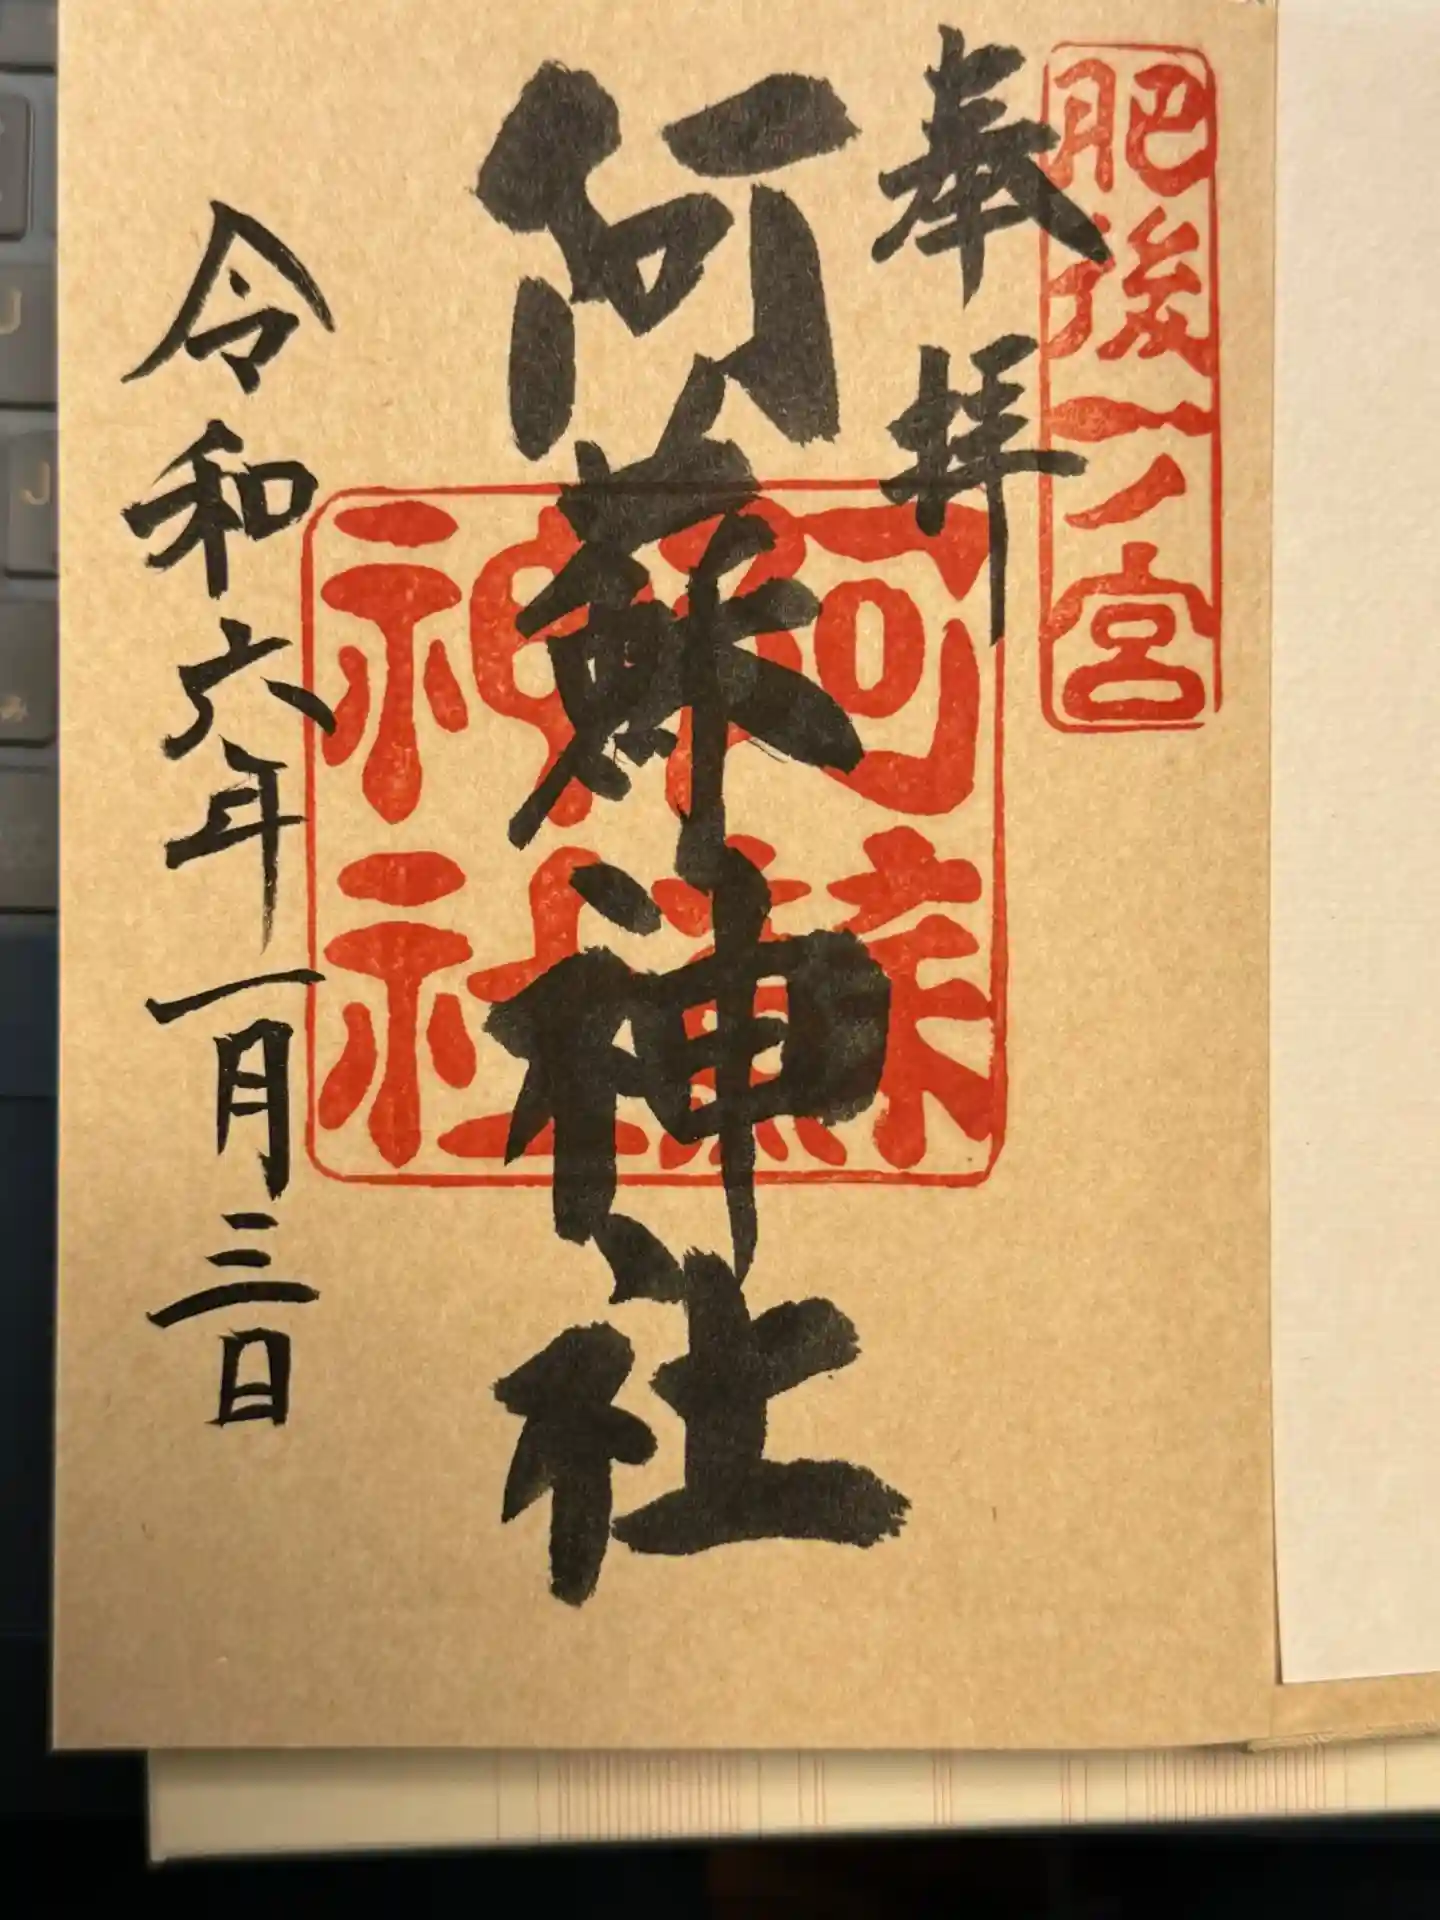 肥後一ノ宮
奉拝
阿蘇神社
阿蘇
神社
令和六年一月三日